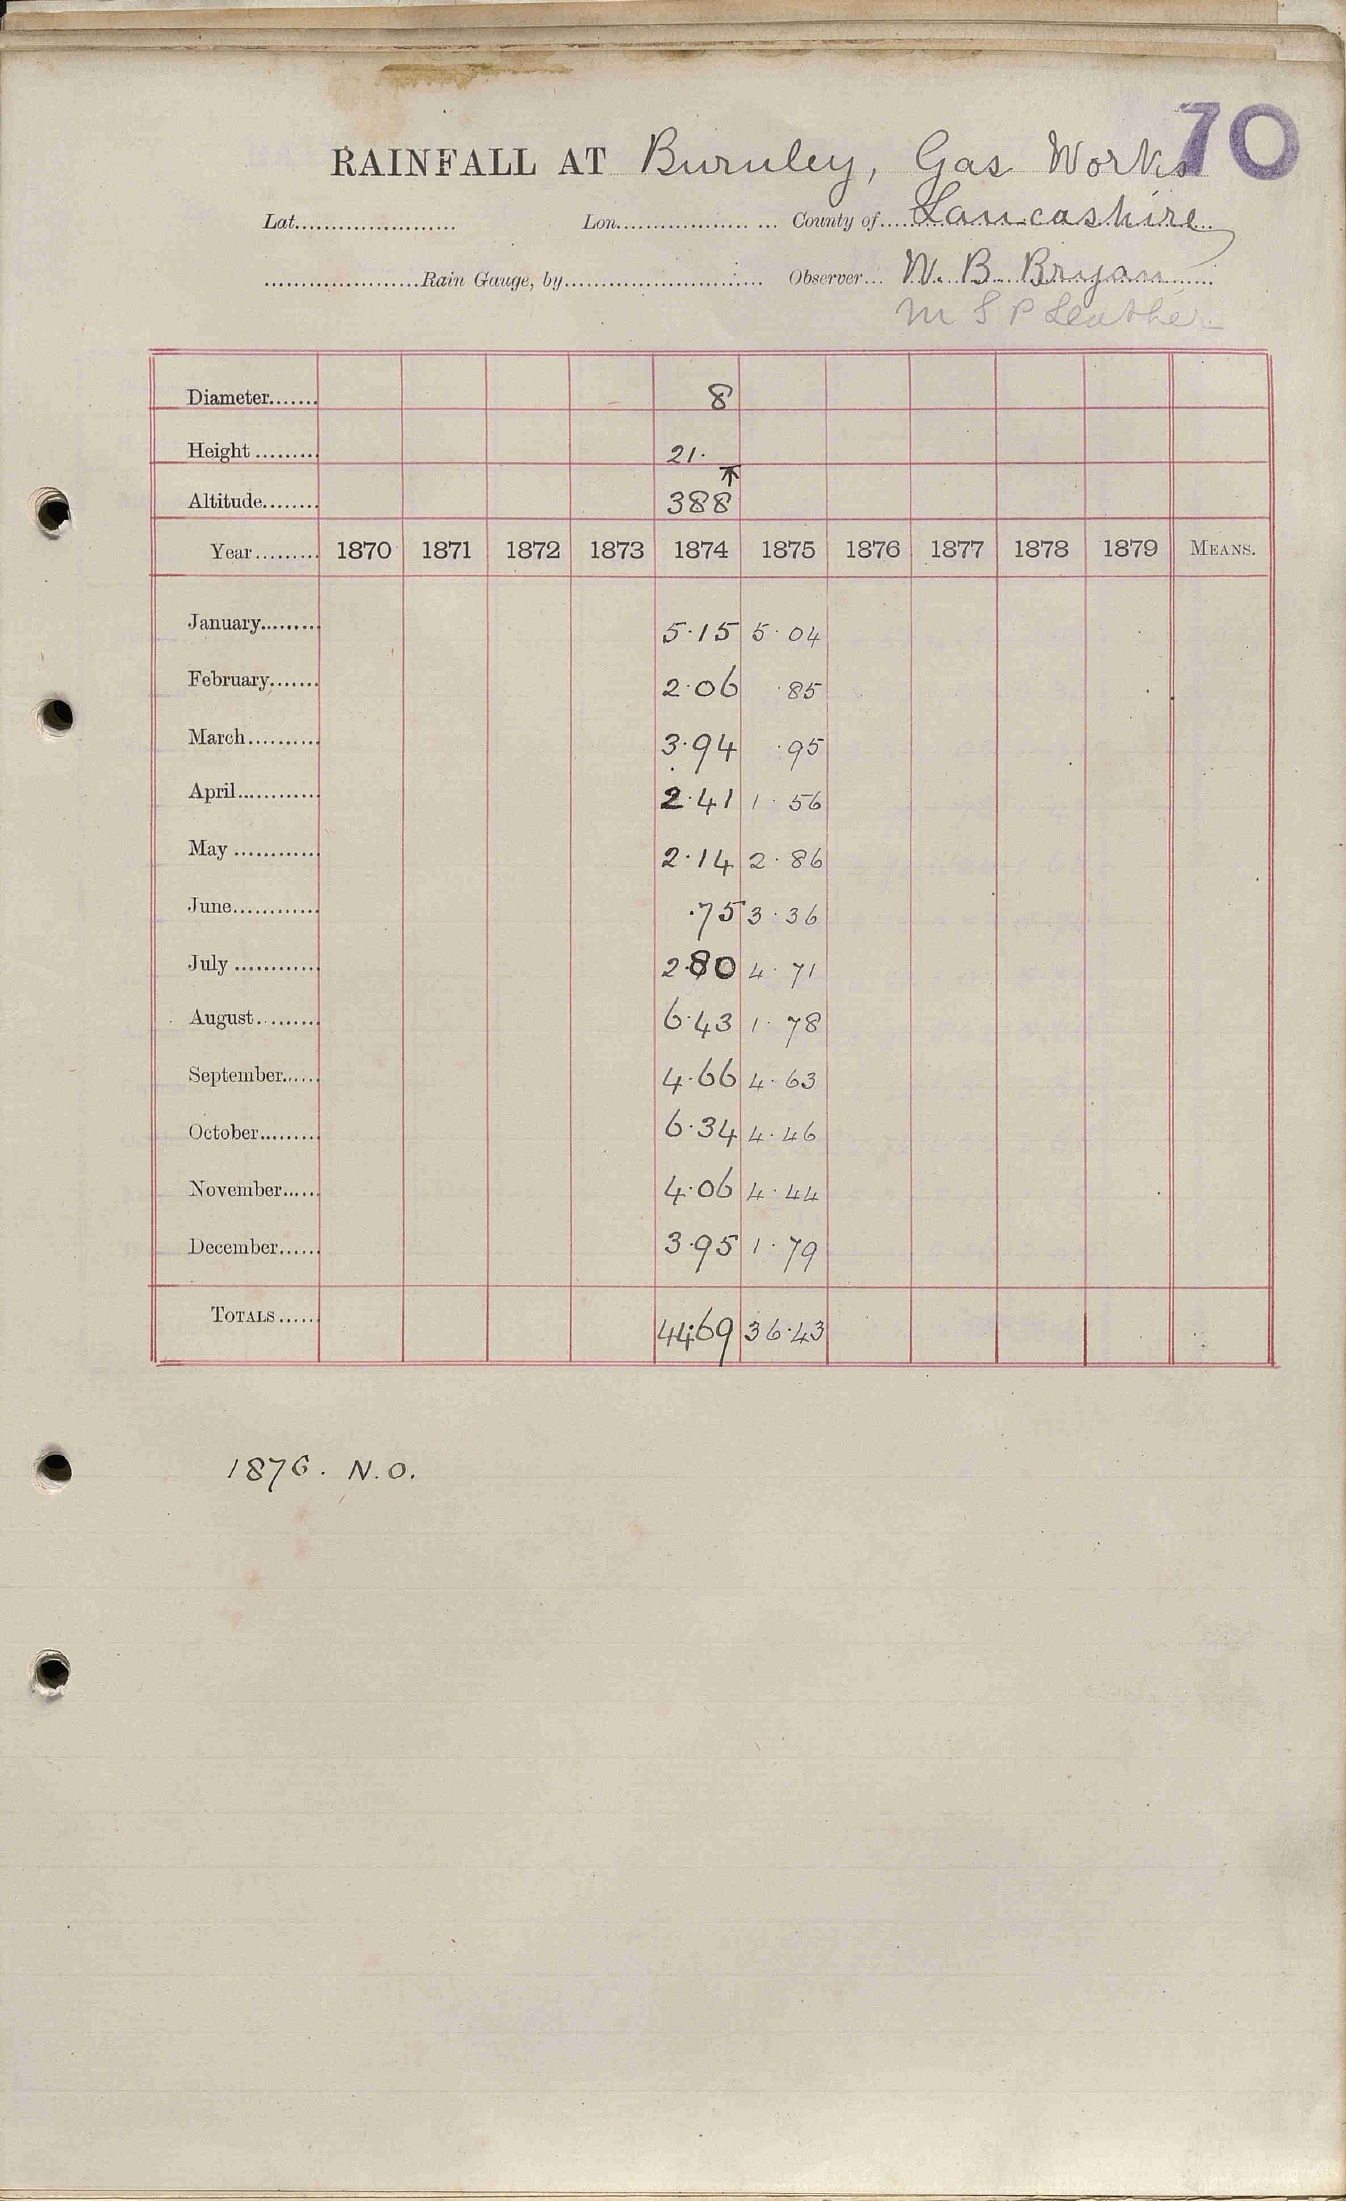 70
RAINFALL AT Burnley, Gas Works
Lat. Lon. County of Lancashire
Rain Gauge, by Observer W. B. Bryan
M S P Leather
Diameter 8
Height 21.
Altitude 388
Year 1870 1871 1872 1873 1874 1875 1876 1877 1878 1879 MEANS.
January 5.15 5.04
February 2.06 .85
March 3.94 .95
April 2.41 1.56
May 2.14 2.86
June .75 3.36
July 2.80 4.71
August 6.43 1.78
September 4.66 4.63
October 6.34 4.46
November 4.06 4.44
December 3.95 1.79
TOTALS 44.69 36.43
1876. N.O.